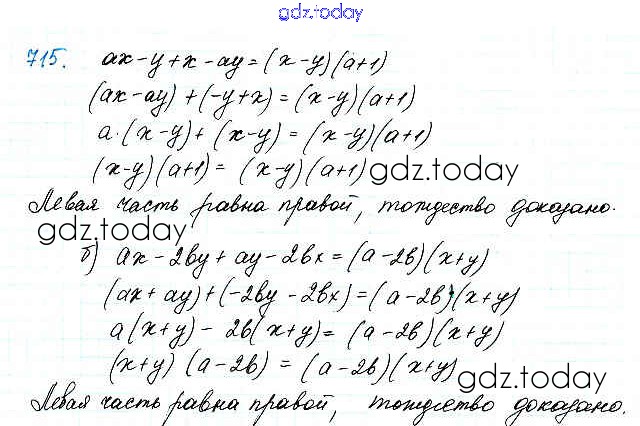 gdz.today
715. ax-y+x-ay=(x-y)(a+1)
(ax-ay)+(-y+x)=(x-y)(a+1)
a·(x-y)+(x-y)=(x-y)(a+1)
(x-y)(a+1)=(x-y)(a+1) gdz.today
Левая часть равна правой, тождество доказано.
gdz.today
б) ax-2by+ay-2bx=(a-2b)(x+y)
(ax+ay)+(-2by-2bx)=(a-2b)(x+y)
a(x+y)-2b(x+y)=(a-2b)(x+y)
(x+y)(a-2b)=(a-2b)(x+y)
gdz.today
Левая часть равна правой, тождество доказано.